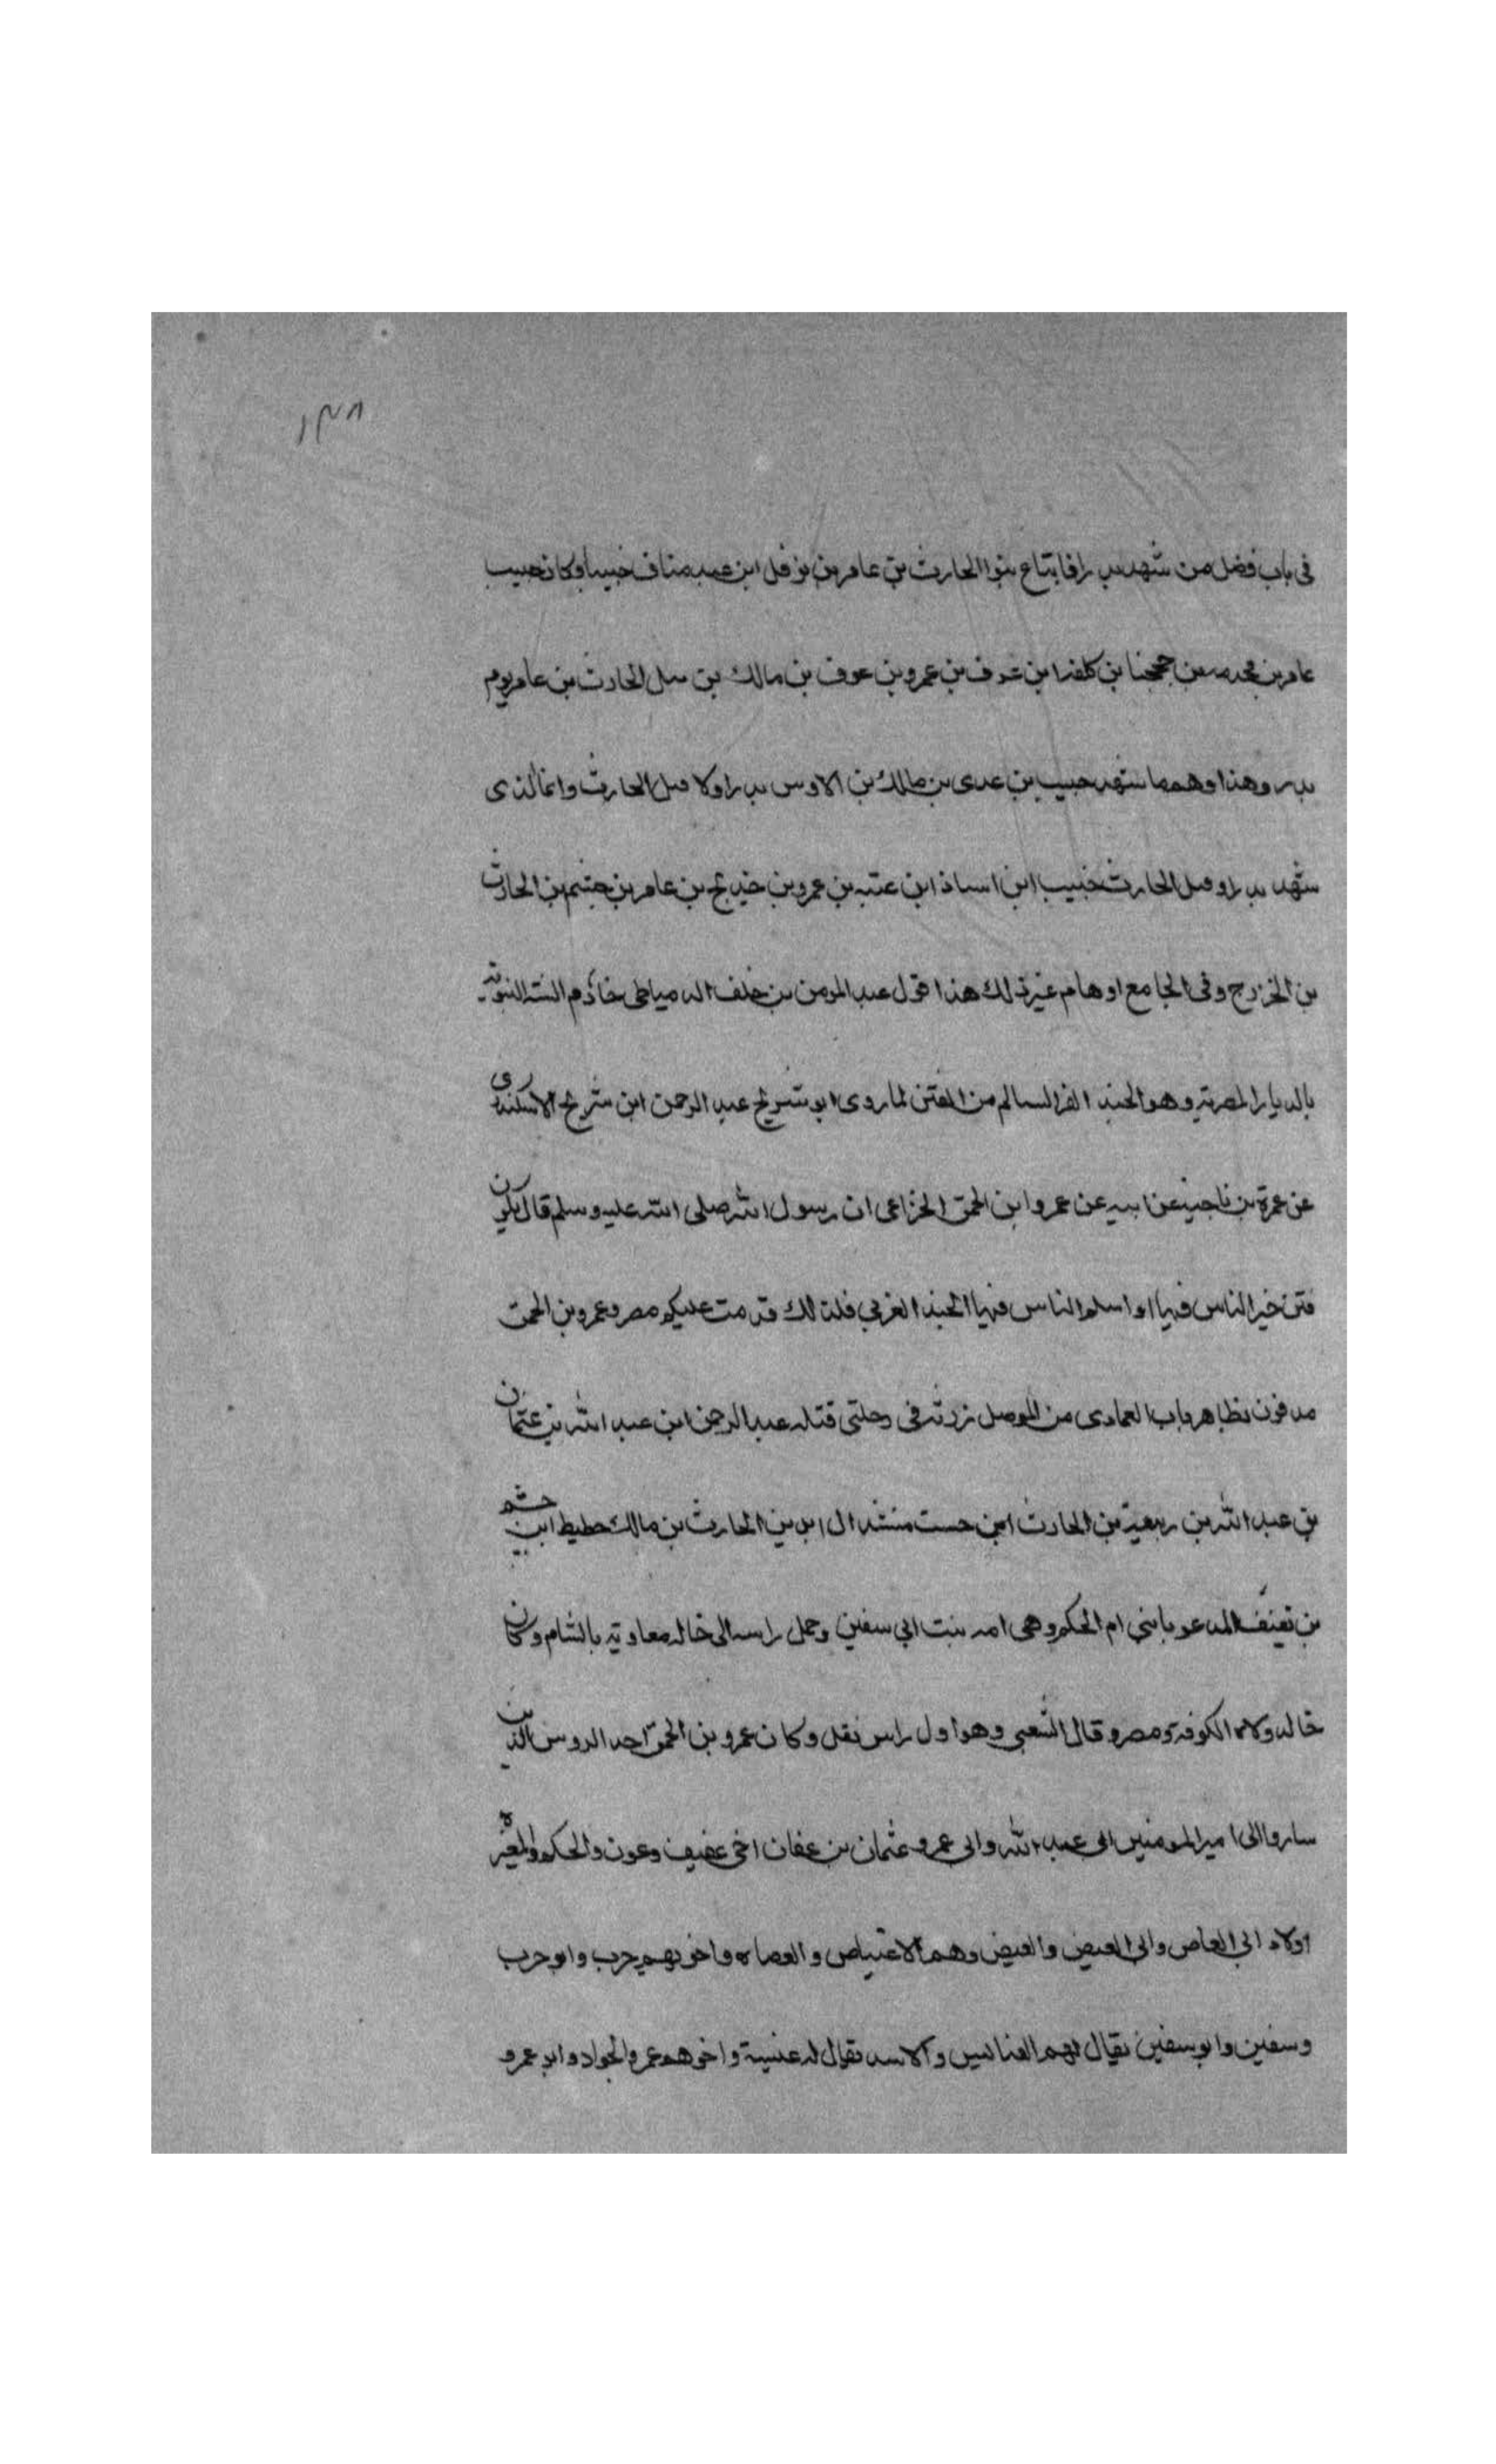 ١٣٨
فى باب فضل من شهد بدرا فابتاع بنوا الحارث بن عامر بن نوفل ابن عبد مناف خبيبا وكان خبيب
عامر بن مجدعه بن جحجبا بن كلفة ابن عوف بن عمرو بن عوف بن مالك بن قتل الحارث بن عامر يوم
بدر وهذا وهم ما شهد خبيب بن عدى بن مالك بن الاوس بدرا ولا قتل الحارث وانما الذى
شهد بدرا وقتل الحارث خبيب ابن اساف ابن عتبه بن عمرو بن خديج بن عامر بن جشم بن الحارث
بن الخزرج وفى الجامع اوهام غير ذلك هذا قول عبد المومن بن خلف الدمياطى خادم السنة النبوية
بالديار المصرية وهو الجند الغر السالم من الفتن لما روى ابو شريح عبد الرحمن ابن شريح الاسكندرى
عن عمرة بن ناجية عن ابيه عن عمرو ابن الحمق الخزاعى ان رسول الله صلى الله عليه وسلم قال تكون
فتن خير الناس فيها او اسلم الناس فيها الجند الغربي فلذالك قدمت عليكم مصر وعمرو بن الحمق
مدفون بظاهر باب العمادى من الموصل زرته فى رحلتى قتله عبد الرحمن ابن عبد الله بن عثمان
بن عبد الله بن ربيعة بن الحارث ابن مالك حطيط ابن جشم
بن ثقيف المدعو بابنى ام الحكم وهى امه بنت ابى سفين وحمل راسه الى خاله معاوية بالشام وكان
خاله ولاه الكوفة ومصر وقال الشعبى وهو اول راس نقل وكان عمرو بن الحمق احد الروس الذين
ساروا الى امير المومنين ابى عبد الله وابى عمرو عثمان بن عفان اخى عفيف وعون والحكم والمغيره
اولاد ابى العاص وابى العيص والعيص وهم الاعياص والعصاه واخوتهم حرب وابو حرب
وسفين وابو سفين يقال لهم العنابس والاسد يقال له عنبسة واخوهم عمرو الجواد وابو عمرو